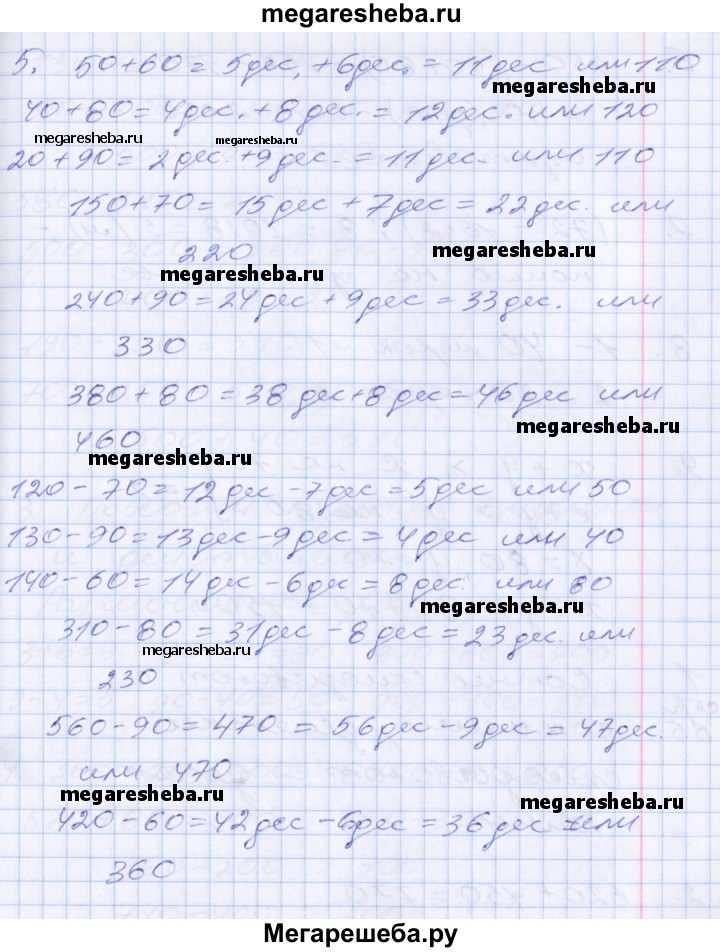 megaresheba.ru
5. 50+60 = 5дес. +6дес. = 11дес или 110
megaresheba.ru
40+80=4дес. +8дес. = 12дес. или 120
megaresheba.ru megaresheba.ru
20+90= 2дес. +9дес. = 11дес. или 110
150+70= 15дес + 7дес = 22дес. или
220 megaresheba.ru
megaresheba.ru
240+90=24дес +9дес =33дес. или
330
380+80=38дес+8дес=46дес или
megaresheba.ru
460
megaresheba.ru
120-70=12дес-7дес=5дес или 50
130-90=13дес-9дес=4дес или 40
140-60=14дес-6дес=8дес. или 80
megaresheba.ru
310-80=31дес-8дес=23дес. или
megaresheba.ru
230
560-90=470 = 56дес-9дес=47дес.
или 470
megaresheba.ru megaresheba.ru
420-60=42дес-6дес=36дес или
360
Мегарешеба.ру